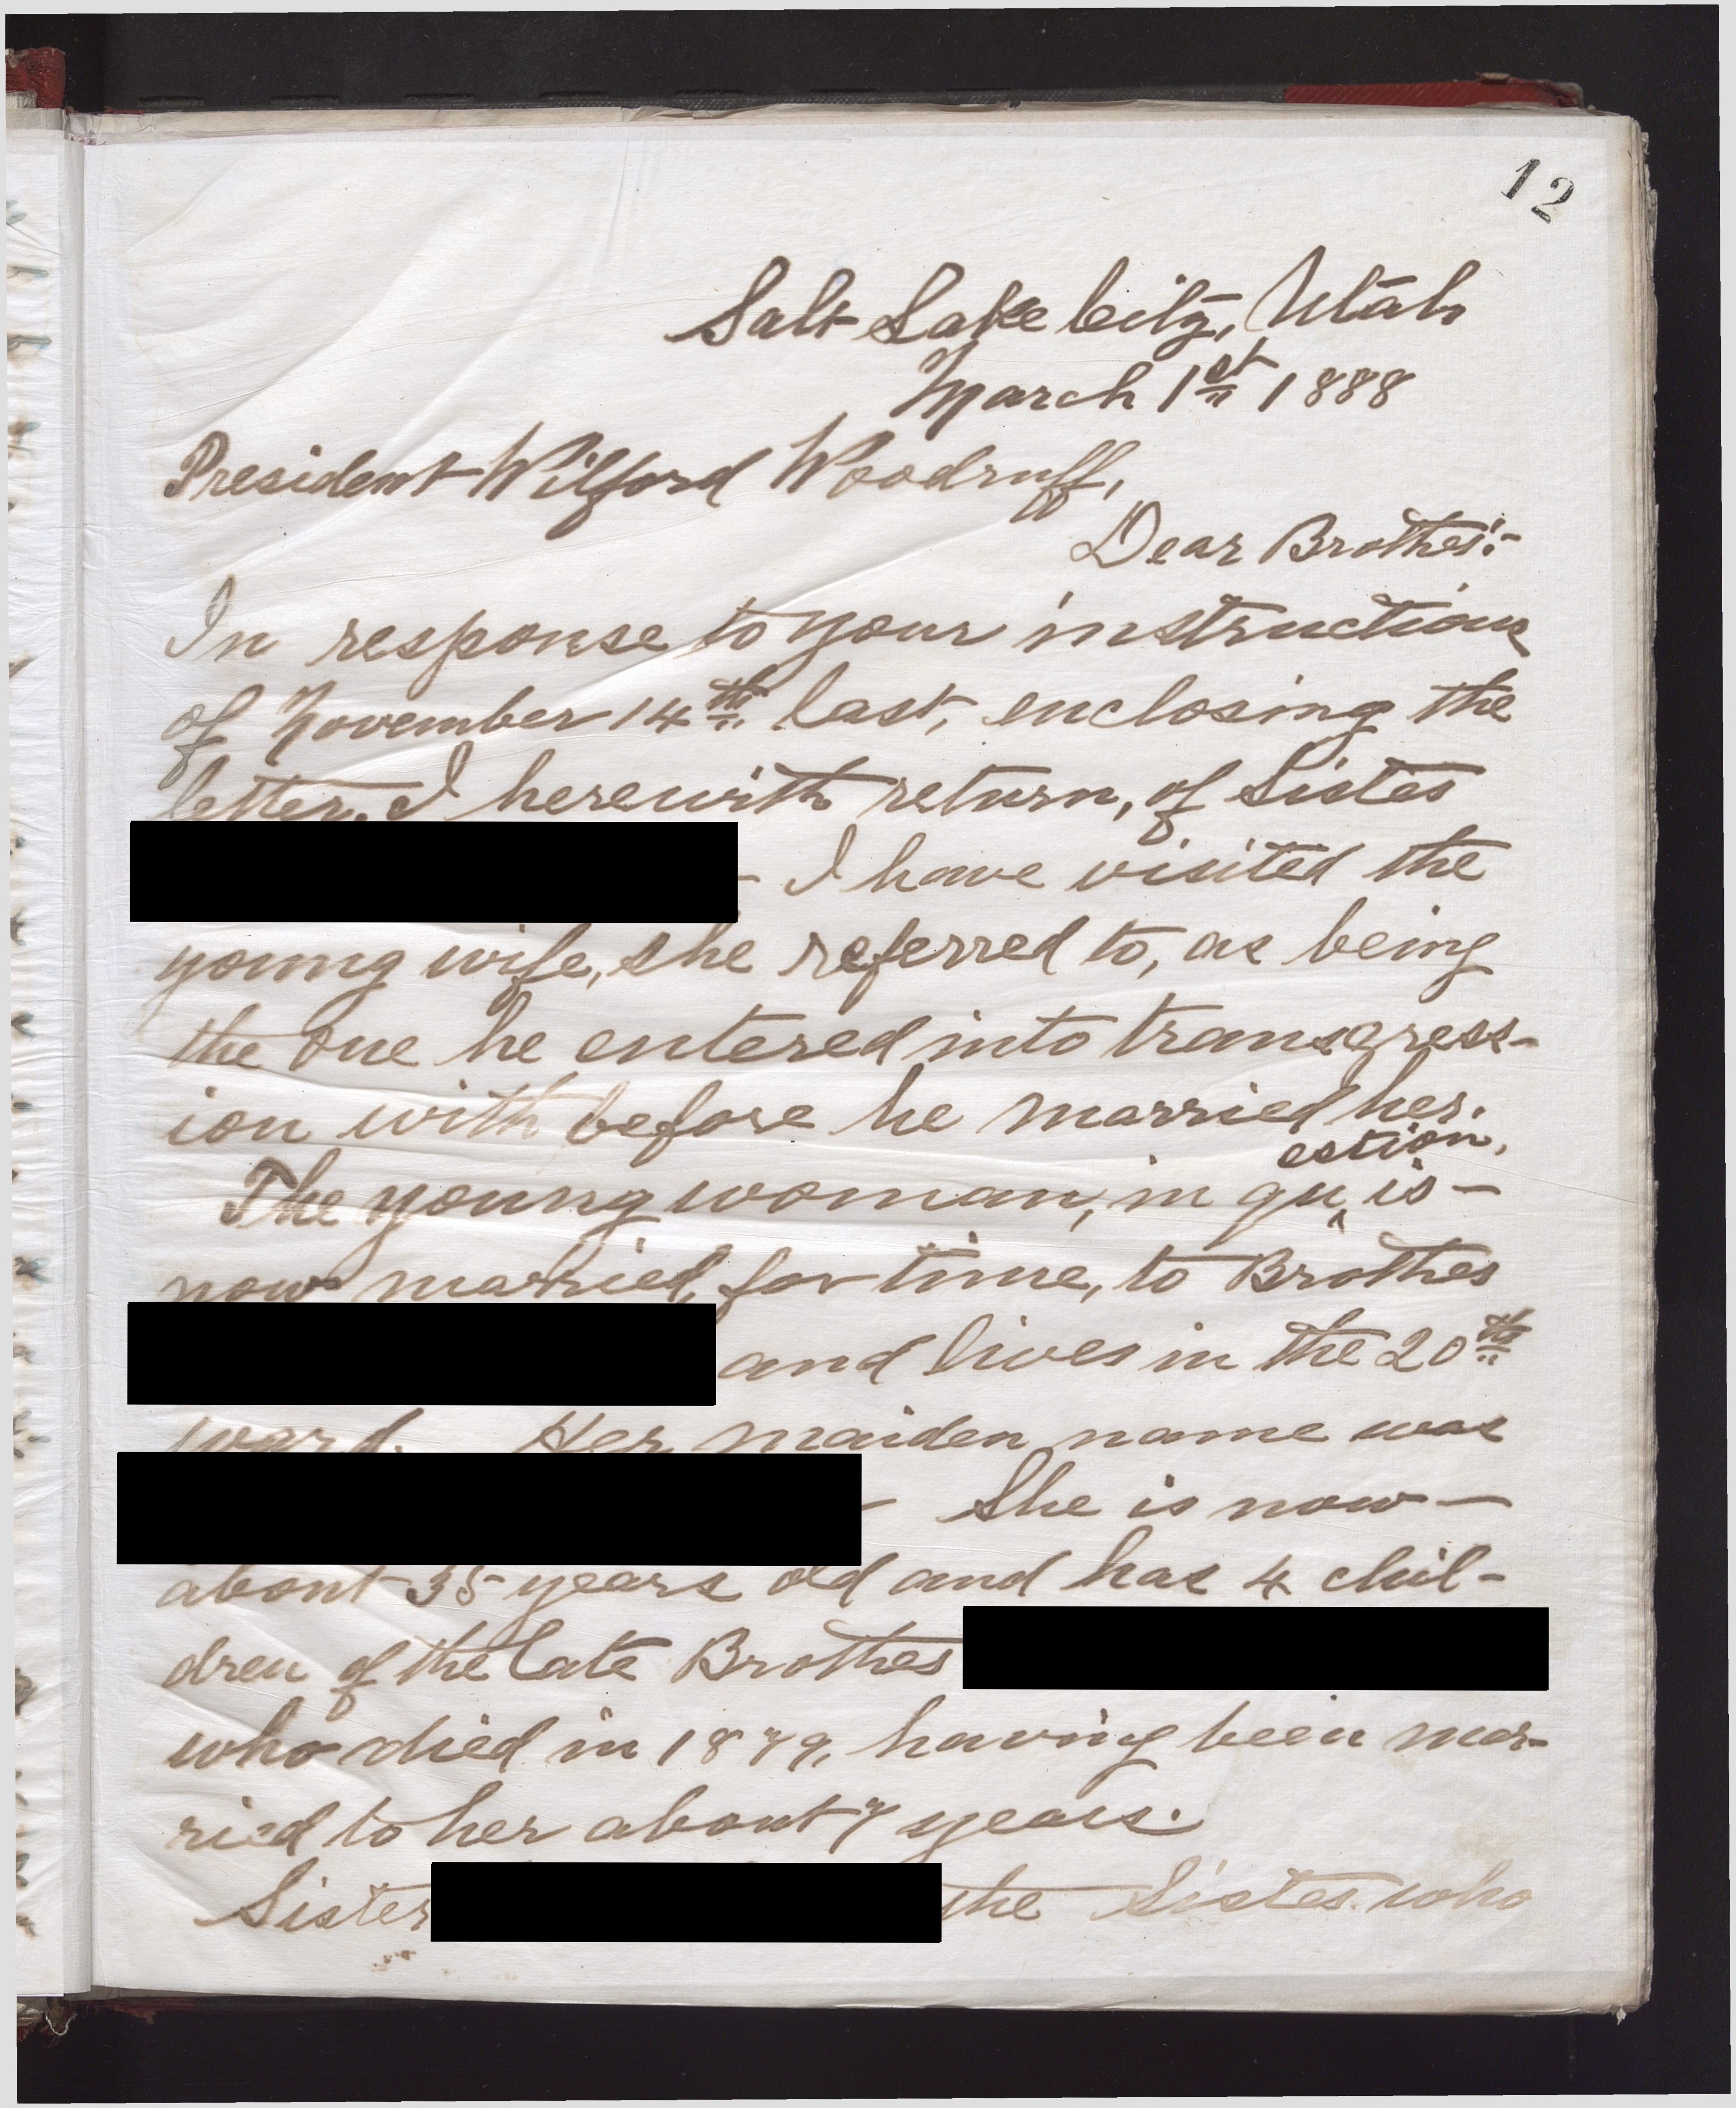 12
Salt Lake City, Utah
March 1st 1888
President Wilford Woodruff,
Dear Brother:-
In response to your instructions
of November 14th last, enclosing the
letter, I herewith return, of Sister
- I have visited the
young wife, she referred to, as being
the one he entered into transgress-
ion with before he married her.
The young woman, in qu^estion, is -
now married, for time, to Brother
and lives in the 20th
ward. Her maiden name was
- She is now -
about 35 years old and has 4 chil-
dren of the late Brother
who died in 1879, having been mar-
ried to her about 7 years.
Sister the Sister who